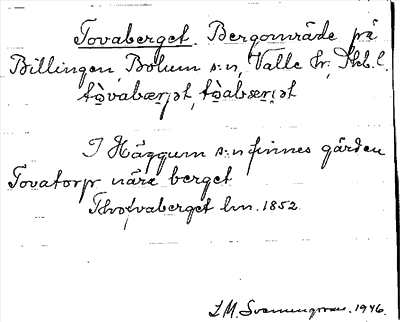 Tovaberget. Bergområde på
Billingen, Bolum s:n, Valle hr, Skb. l.
tòvabærjət, tòabærjət
I Häggum s:n finnes gården
Tovatorp nära berget
Thofvaberget lm. 1852
1946.